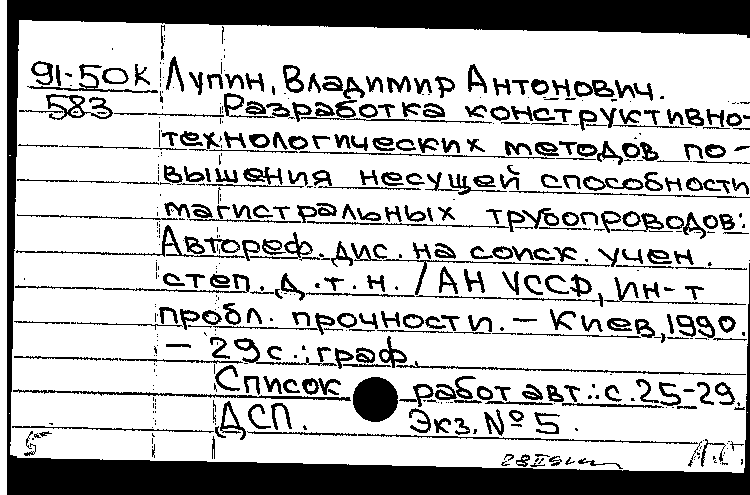 91-50К Лупин, Владимир Антонович.
583 Разработка конструктивно-
технологических методов по-
вышения несущей способности
магистральных трубопроводов:
Автореф. дис. на соиск. учен.
степ. д.т.н. / АН УССР, Ин-т
пробл. прочности. – Киев, 1990.
– 29 с.: граф.
Список работ авт.: с. 25-29.
ДСП. Экз. № 5.
5 А.С.